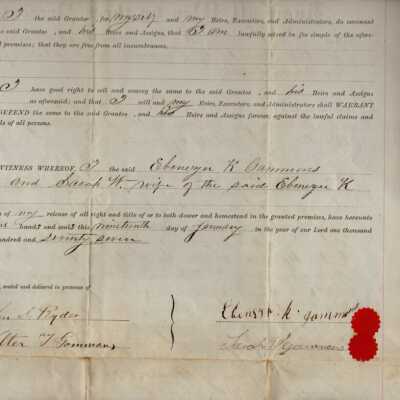 I the said Grantor , for myself and my Heirs, Executors, and Administrators, do covenant
he said Grantee , and his Heirs and Assigns, that I am lawfully seized in fee simple of the afore-
d premises; that they are free from all incumbrances,
I have good right to sell and convey the same to the said Grantee , and his Heirs and Assigns
as aforesaid; and that I will and my Heirs, Executors, and Administrators shall WARRANT
DEFEND the same to the said Grantee , and his Heirs and Assigns forever, against the lawful claims and
ds of all persons.
WITNESS WHEREOF, I the said Ebenezer K Gammons
and Sarah W. wife of the said Ebenezer K
n of my release of all right and title of or to both dower and homestead in the granted premises, have hereunto
hands and seals this nineteenth day of January in the year of our Lord one thousand
hundred and seventy seven
, sealed and delivered in presence of
S. Ryder Ebenezer K. Gammons
lter T Gammons Sarah W Gammons